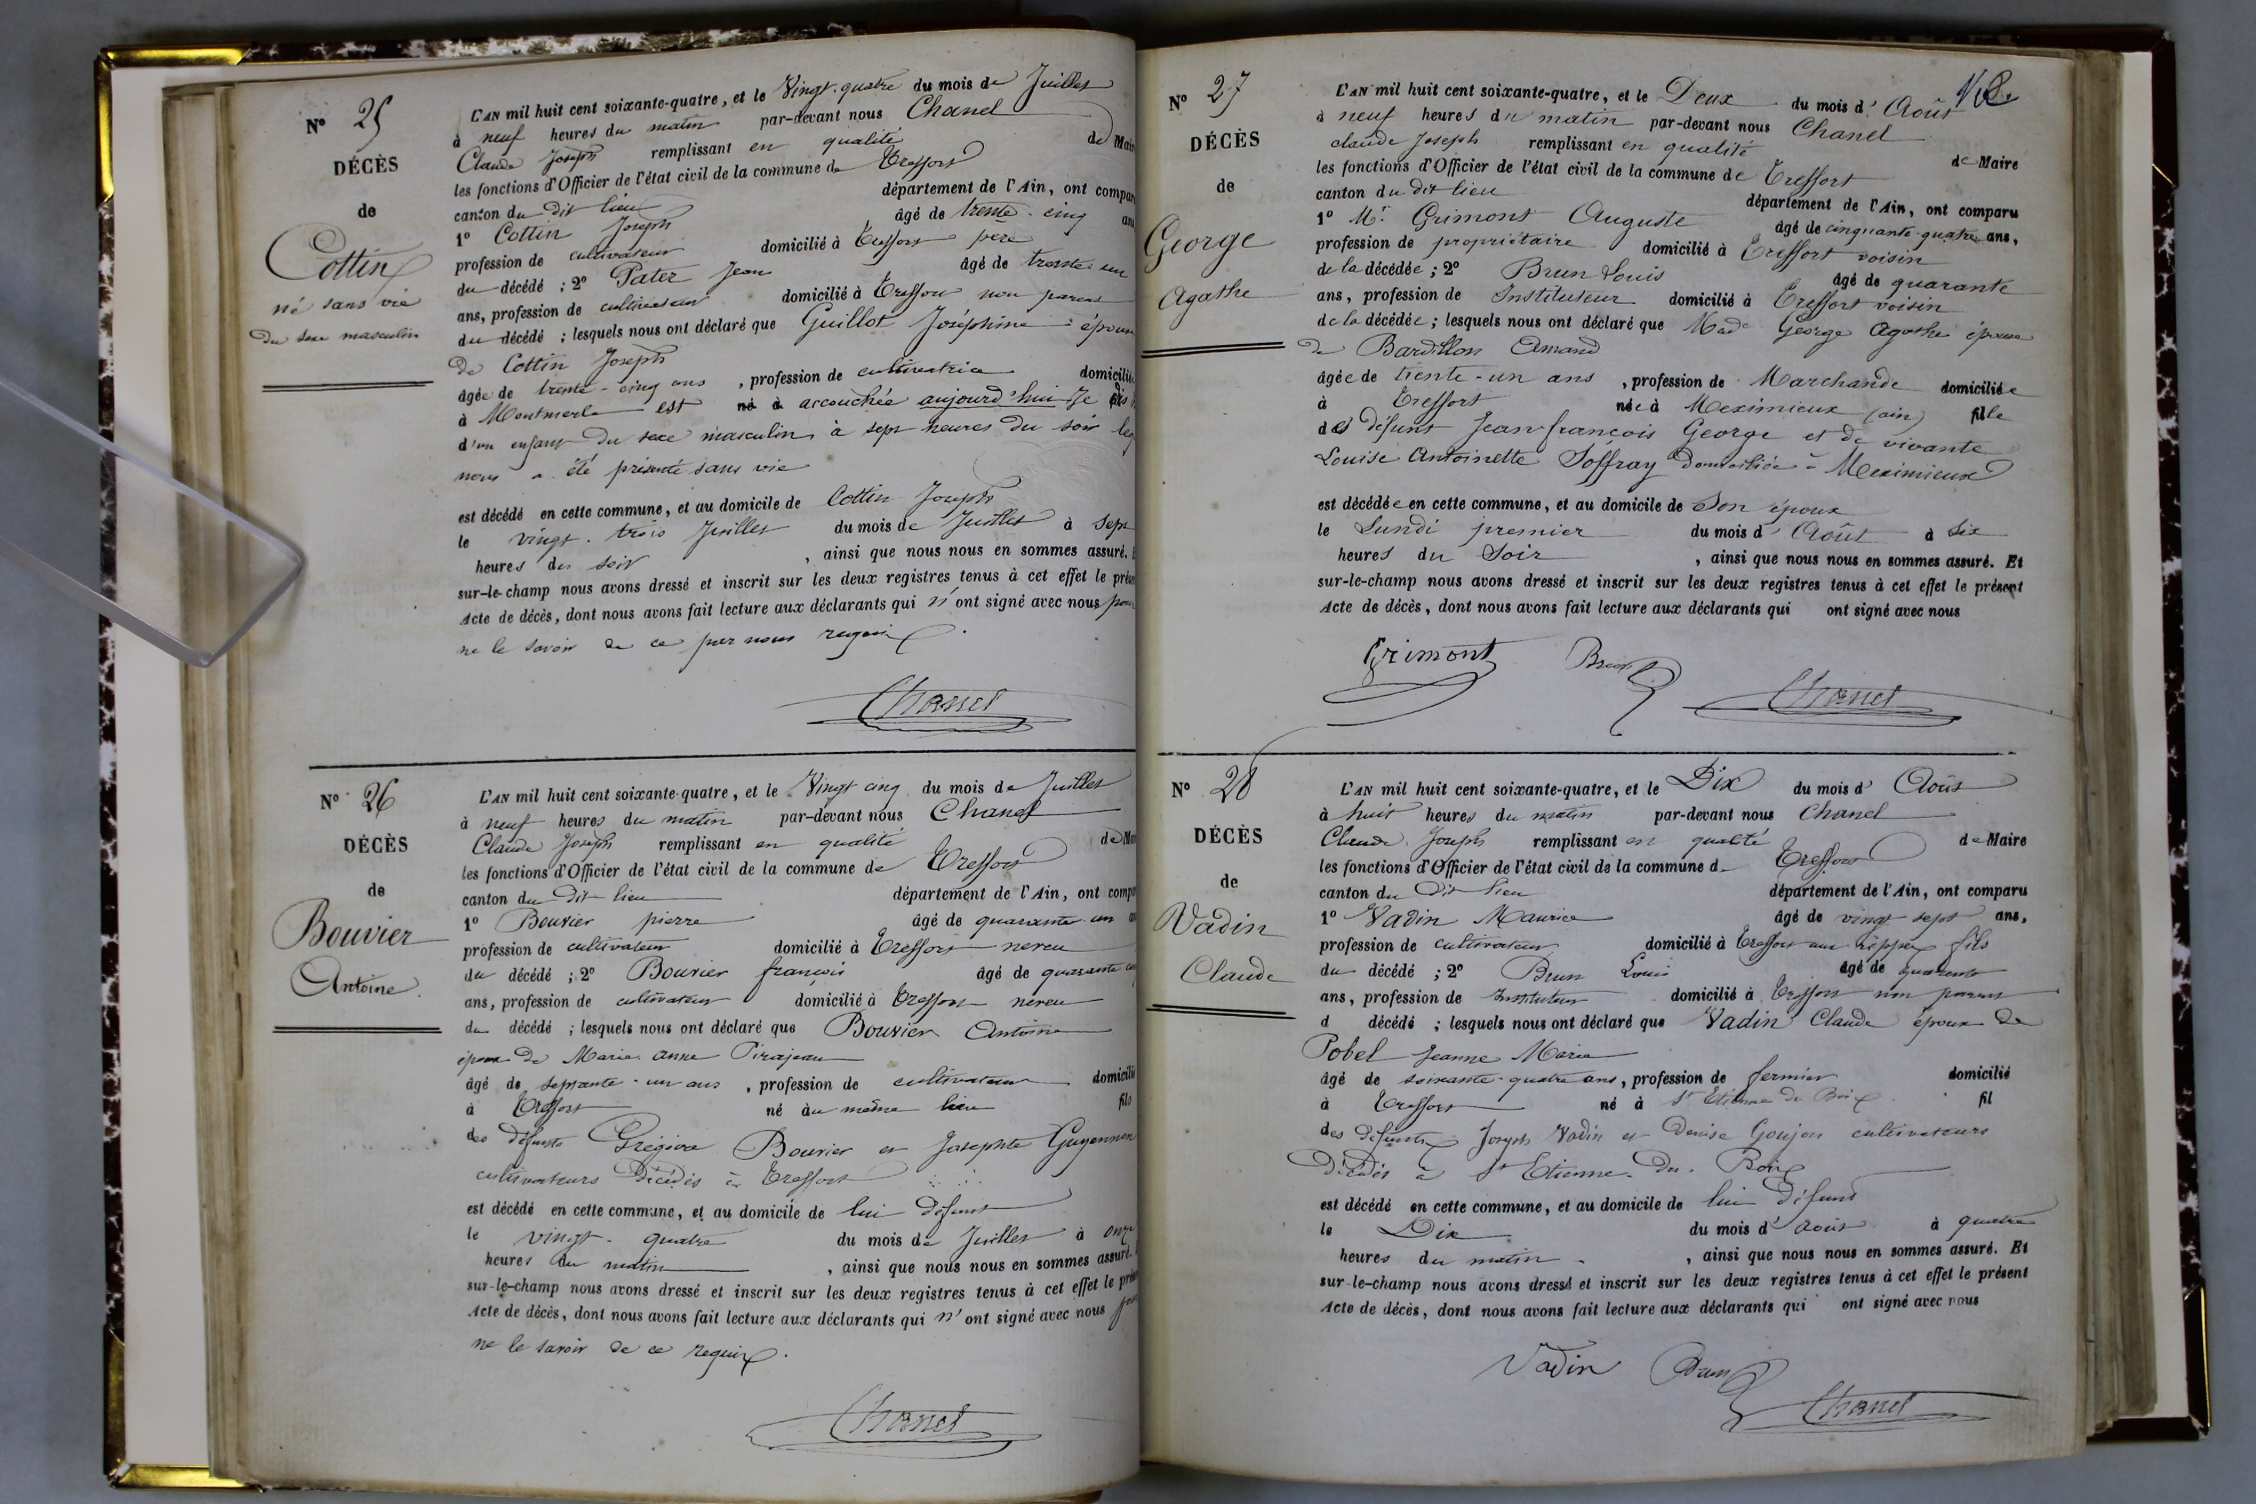 N° 25
DÉCÈS
de
Cottin
né sans vie
du sexe masculin
L'AN mil huit cent soixante-quatre, et le Vingt-quatre du mois de Juillet
à neuf heures du matin par-devant nous Chanel
Claude Joseph remplissant en qualité de Mair
les fonctions d'Officier de l'état civil de la commune de Treffort
canton du dit lieu département de l'Ain, ont compar
1° Cottin Joseph âgé de trente-cinq ans
profession de cultivateur domicilié à Treffort père
du décédé ; 2° Pater Jean âgé de trente un
ans, profession de cultivateur domicilié à Treffort non parent
du décédé ; lesquels nous ont déclaré que Guillot Joséphine épouse
de Cottin Joseph
âgée de trente-cinq ans, profession de cultivatrice domicilié
à Montmerle est né à accouchée aujourd'hui
d'un enfant du sexe masculin à sept heures du soir leq
nous a été présenté sans vie
est décédé en cette commune, et au domicile de Cottin Joseph
le vingt-trois Juillet du mois de Juillet à sept
heures du soir, ainsi que nous nous en sommes assuré. E
sur-le-champ nous avons dressé et inscrit sur les deux registres tenus à cet effet le prése
Acte de décès, dont nous avons fait lecture aux déclarants qui n'ont signé avec nous pour
ne le savoir de ce par nous requis
Chanel
N° 26
DÉCÈS
de
Bouvier
Antoine
L'AN mil huit cent soixante-quatre, et le Vingt cinq du mois de Juillet
à neuf heures du matin par-devant nous Chanel
Claude Joseph remplissant en qualité de Mai
les fonctions d'Officier de l'état civil de la commune de Treffort
canton du dit lieu département de l'Ain, ont compa
1° Bouvier pierre âgé de quarante-un an
profession de cultivateur domicilié à Treffort neveu
du décédé ; 2° Bouvier françois âgé de quarante
ans, profession de cultivateur domicilié à Treffort neveu
du décédé ; lesquels nous ont déclaré que Bouvier Antoine
époux de Marie anne Pirajean
âgé de septante-un ans, profession de cultivateur domicilié
à Treffort né au même lieu fils
des défunts Grégoire Bouvier et Josephte Guyennon
cultivateurs Décédés à Treffort
est décédé en cette commune, et au domicile de lui défunt
le vingt-quatre du mois de Juillet à onze
heures du matin, ainsi que nous nous en sommes assuré.
sur-le-champ nous avons dressé et inscrit sur les deux registres tenus à cet effet le prése
Acte de décès, dont nous avons fait lecture aux déclarants qui n'ont signé avec nous pour
ne le savoir de ce requis.
Chanel
N° 27
DÉCÈS
de
George
Agathe
L'AN mil huit cent soixante-quatre, et le Deux du mois d'Août
à neuf heures du matin par-devant nous Chanel
claude Joseph remplissant en qualité de Maire
les fonctions d'Officier de l'état civil de la commune de Treffort
canton du dit lieu département de l'Ain, ont comparu
1° Mr Grimont Auguste âgé de cinquante-quatre ans,
profession de propriétaire domicilié à Treffort voisin
de la décédée ; 2° Brun Louis âgé de quarante
ans, profession de Instituteur domicilié à Treffort voisin
de la décédée ; lesquels nous ont déclaré que Made George Agathe épouse
de Bardillon Amand
âgée de trente-un ans, profession de Marchande domiciliée
à Treffort née à Meximieux (ain) fille
des défunt Jean françois George et de vivante
Louise Antoinette Soffray domiciliée à Meximieux
est décédée en cette commune, et au domicile de Son époux
le Lundi premier du mois d'Août à Six
heures du Soir, ainsi que nous nous en sommes assuré. Et
sur-le-champ nous avons dressé et inscrit sur les deux registres tenus à cet effet le présent
Acte de décès, dont nous avons fait lecture aux déclarants qui ont signé avec nous
Grimont Brun Chanel
N° 28
DÉCÈS
de
Vadin
Claude
L'AN mil huit cent soixante-quatre, et le Dix du mois d'Août
à huit heures du matin par-devant nous Chanel
Claude Joseph remplissant en qualité de Maire
les fonctions d'Officier de l'état civil de la commune d Treffort
canton du dit lieu département de l'Ain, ont comparu
1° Vadin Maurice âgé de vingt sept ans,
profession de cultivateur domicilié à Treffort fils
du décédé ; 2° Brun Louis âgé de quarante
ans, profession de Instituteur domicilié à Treffort non parent
d décédé ; lesquels nous ont déclaré que Vadin Claude époux de
Pobel Jeanne Marie
âgé de soixante-quatre ans, profession de fermier domicilié
à Treffort né à St Etienne du Bois fil
des défunts Joseph Vadin et Denise Goujon cultivateurs
Décédés à St Etienne du Bois
est décédé en cette commune, et au domicile de lui défunt
le Dix du mois d'août à quatre
heures du matin, ainsi que nous nous en sommes assuré. Et
sur-le-champ nous avons dressé et inscrit sur les deux registres tenus à cet effet le présent
Acte de décès, dont nous avons fait lecture aux déclarants qui ont signé avec nous
Vadin Brun Chanel